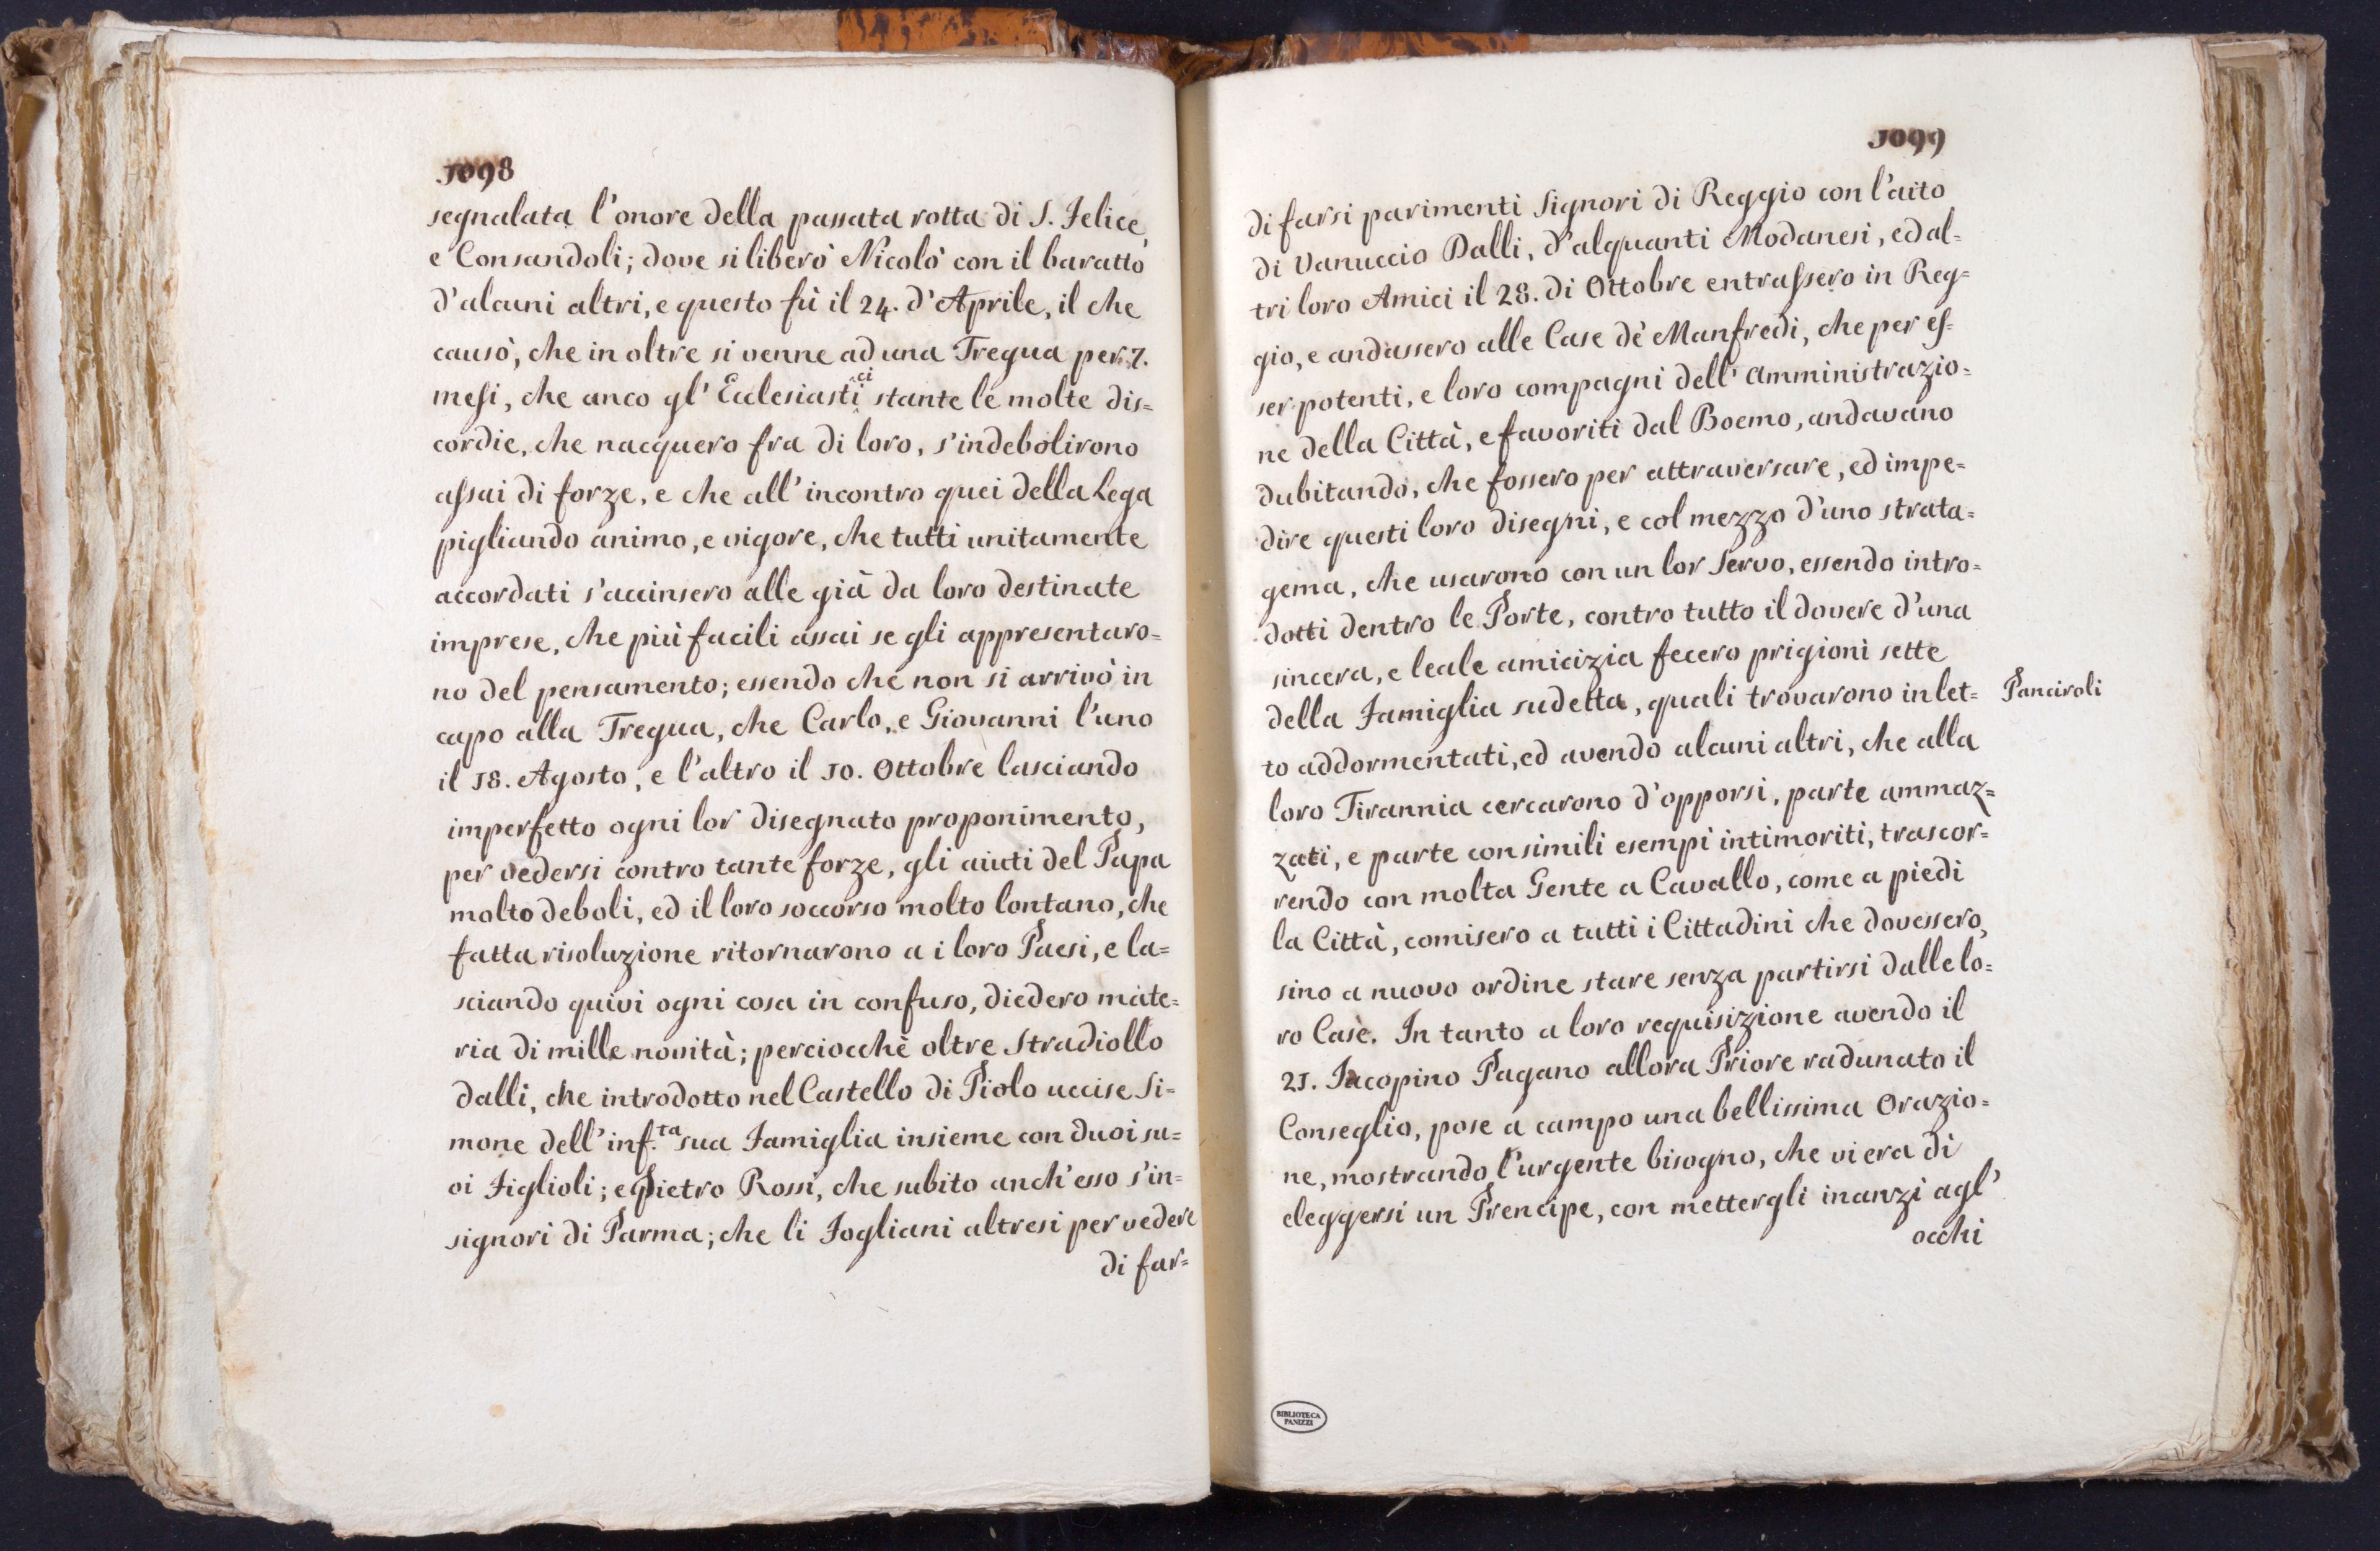 1098
segnalata l'onore della passata rotta di S. Felice,
e Consandoli; dove si liberò Nicolò con il baratto
d'alcuni altri, e questo fù il 24. d'Aprile, il che
causò, che in oltre si venne ad una Tregua per 7.
mesi, che anco gl' Ecclesiastici stante le molte dis=
cordie, che nacquero fra di loro, s'indebolirono
assai di forze, e che all'incontro quei della Lega
pigliando animo, e vigore, che tutti unitamente
accordati s'accinsero alle già da loro destinate
imprese, che più facili assai se gli appresentaro=
no del pensamento; essendo che non si arrivò in
capo alla Tregua, che Carlo, e Giovanni l'uno
il 18. Agosto, e l'altro il 10. Ottobre lasciando
imperfetto ogni lor disegnato proponimento,
per vedersi contro tante forze, gli aiuti del Papa
molto deboli, ed il loro soccorso molto lontano, che
fatta risoluzione ritornarono a i loro Paesi, e la=
sciando quivi ogni cosa in confuso, diedero mate=
ria di mille novità; perciocchè oltre Stradiollo
dalli, che introdotto nel Castello di Piolo uccise Si=
mone dell'inf.ta sua Famiglia insieme con duoi su=
oi Figlioli; e Pietro Rossi, che subito anch'esso s'in=
signori di Parma; che li Fogliani altresi per vedere
di far=
1099
di farsi parimenti Signori di Reggio con l'aito
di Vanuccio Dalli, d'alquanti Modanesi, ed al=
tri loro Amici il 28. di Ottobre entrassero in Reg=
gio, e andassero alle Case dè Manfredi, che per es=
ser potenti, e loro compagni dell' Amministrazio=
ne della Città, e favoriti dal Boemo, andavano
dubitando, che fossero per attraversare, ed impe=
dire questi loro disegni, e col mezzo d'uno strata=
gema, che usarono con un lor Servo, essendo intro=
dotti dentro le Porte, contro tutto il dovere d'una
sincera, e leale amicizia fecero prigioni sette
della Famiglia sudetta, quali trovarono in let=
Panciroli
to addormentati, ed avendo alcuni altri, che alla
loro Tirannia cercarono d'opporsi, parte ammaz=
zati, e parte con simili esempi intimoriti, trascor=
rendo con molta Gente a Cavallo, come a piedi
la Città, comisero a tutti i Cittadini che dovessero,
sino a nuovo ordine stare senza partirsi dalle lo=
ro Case. In tanto a loro requisizione avendo il
21. Iacopino Pagano allora Priore radunato il
Conseglio, pose a campo una bellissima Orazio=
ne, mostrando l'urgente bisogno, che vi era di
eleggersi un Prencipe, con mettergli inanzi agl'
occhi
BIBLIOTECA
PANIZZI